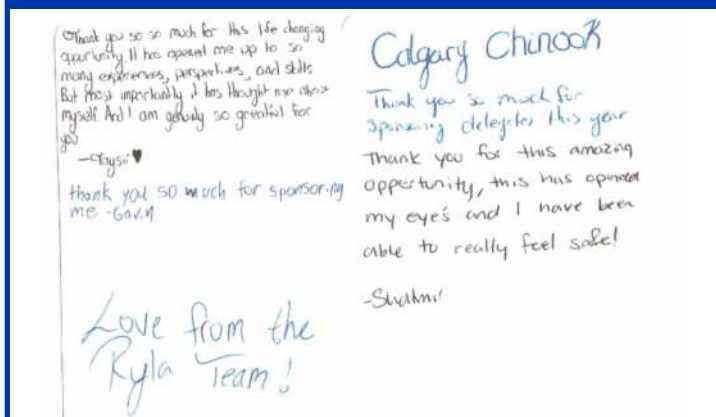 Thank you so so much for this life changing
opportunity. It has opened me up to so
many experiences, perspectives, and skills
But most importantly it has thought me about
myself And I am genuinly so greatful for
you
-Taysir♥
thank you so much for sponsoring
me -Gavin
Love from the
Ryla Team!
Calgary Chinook
Thank you so much for
sponsering delegates this year
Thank you for this amazing
opportunity, this has opened
my eye's and I have been
able to really feel safe!